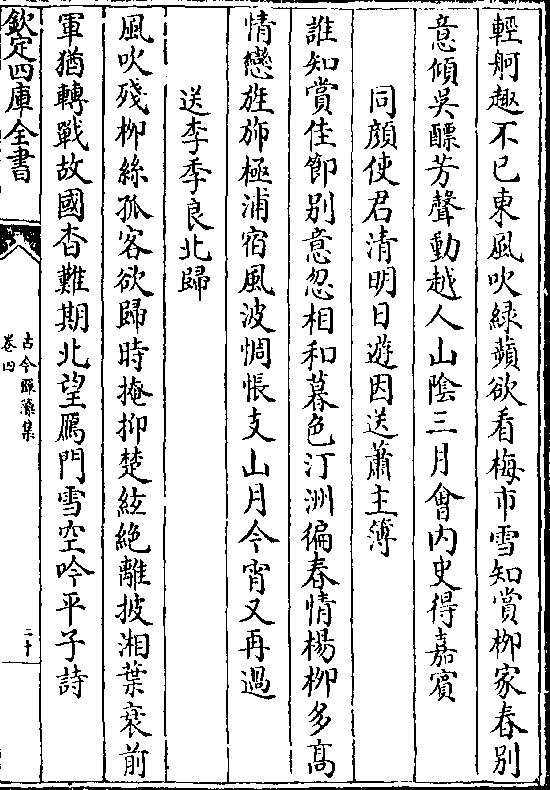 輕舸趣不已東風吹緑蘋欲看梅市雪知賞栁家春別
意傾吳醥芳聲動越人山陰三月會内史得嘉賔
同顔使君清明日遊因送蕭主簿
誰知賞佳節别意忽相和暮色汀洲徧春情楊栁多髙
情戀旌斾極浦宿風波惆悵支山月今宵又再過
送李季良北歸
風吹殘栁絲孤客欲歸時掩抑楚絃絶離披湘葉衰前
軍猶轉戰故國杳難期北望鴈門雪空吟平子詩
欽定四庫全書
古今禪藻集
卷四
二十